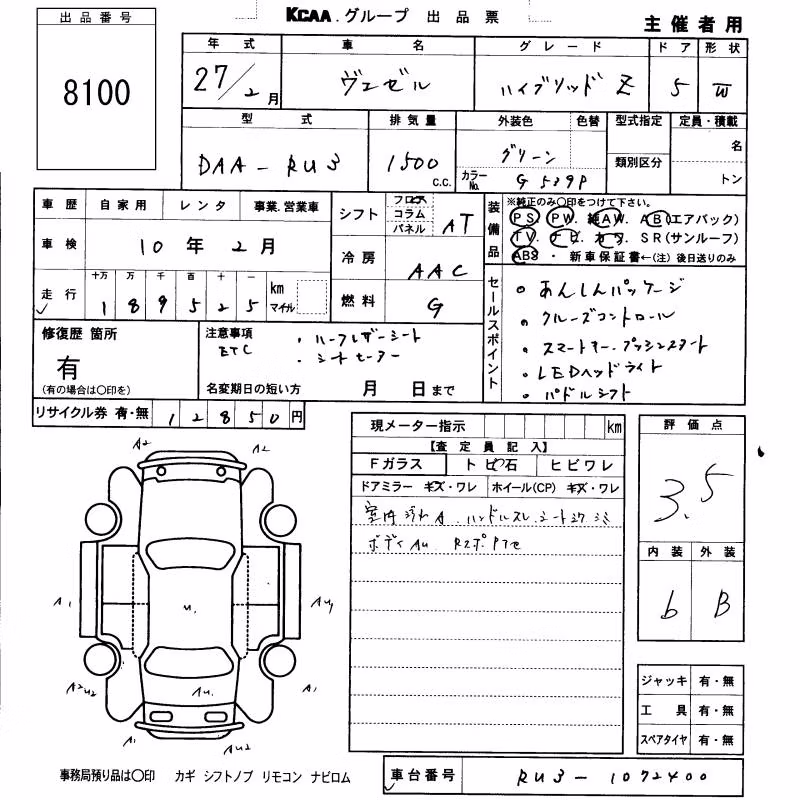 出品番号
8100
KCAA.グループ 出品票
主催者用
年式 車名 グレード ドア 形状
27/2月 ヴェゼル ハイブリッド Z 5 W
型式 排気量 外装色 色替 型式指定 定員・積載
DAA-RU3 1500 C.C. グリーン
カラーNo. G539P
類別区分
名
トン
車歴 自家用 レンタ 事業.営業車
車検 10年2月
走行 十万 万 千 百 十 一 km マイル
189525
シフト フロア コラム パネル AT
冷房 AAC
燃料 G
装備品
※純正のみ○印をつけて下さい。
PS. PW. 純AW. AB(エアバック)
TV. ナビ. カワ. SR(サンルーフ)
ABS ・ 新車保証書←(注) 後日送りのみ
セールスポイント
あんしんパッケージ
クルーズコントロール
スマートキー.プッシュスタート
LEDヘッドライト
パドルシフト
修復歴 箇所
有
(有の場合は○印を)
注意事項
ETC
・ハーフレザーシート
・シートヒーター
名変期日の短い方 月 日まで
リサイクル券 有・無 12850円
現メーター指示 km
【査定員記入】
Fガラス トビ石 ヒビワレ
ドアミラー キズ・ワレ ホイール(CP) キズ・ワレ
ボディAU
評価点
3.5
内装 外装
b B
A2 A2
A1 U1 AU1
A2U2 AU1 A1
A1 AU2
ジャッキ 有・無
工具 有・無
スペアタイヤ 有・無
事務局預り品は○印 カギ シフトノブ リモコン ナビロム
車台番号 RU3-1072400